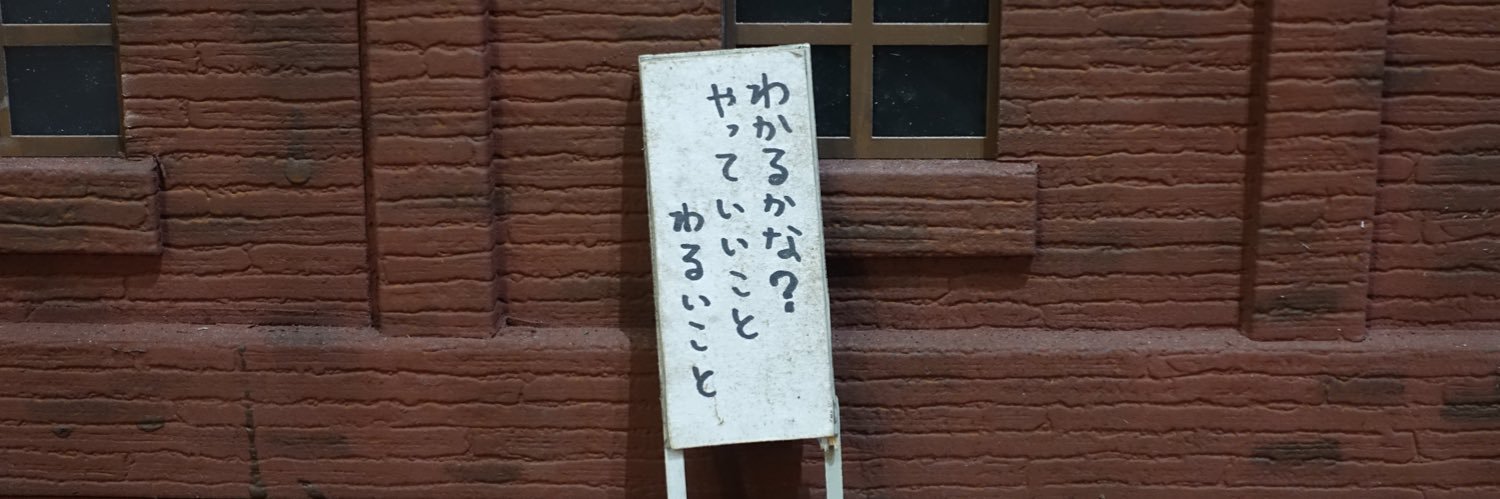 わかるかな?
やっていいこと
わるいこと